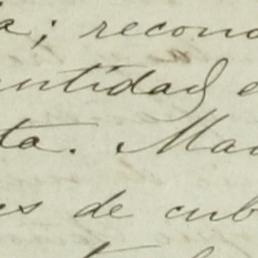 a; recono
antidad e
ta. Man
es de cub